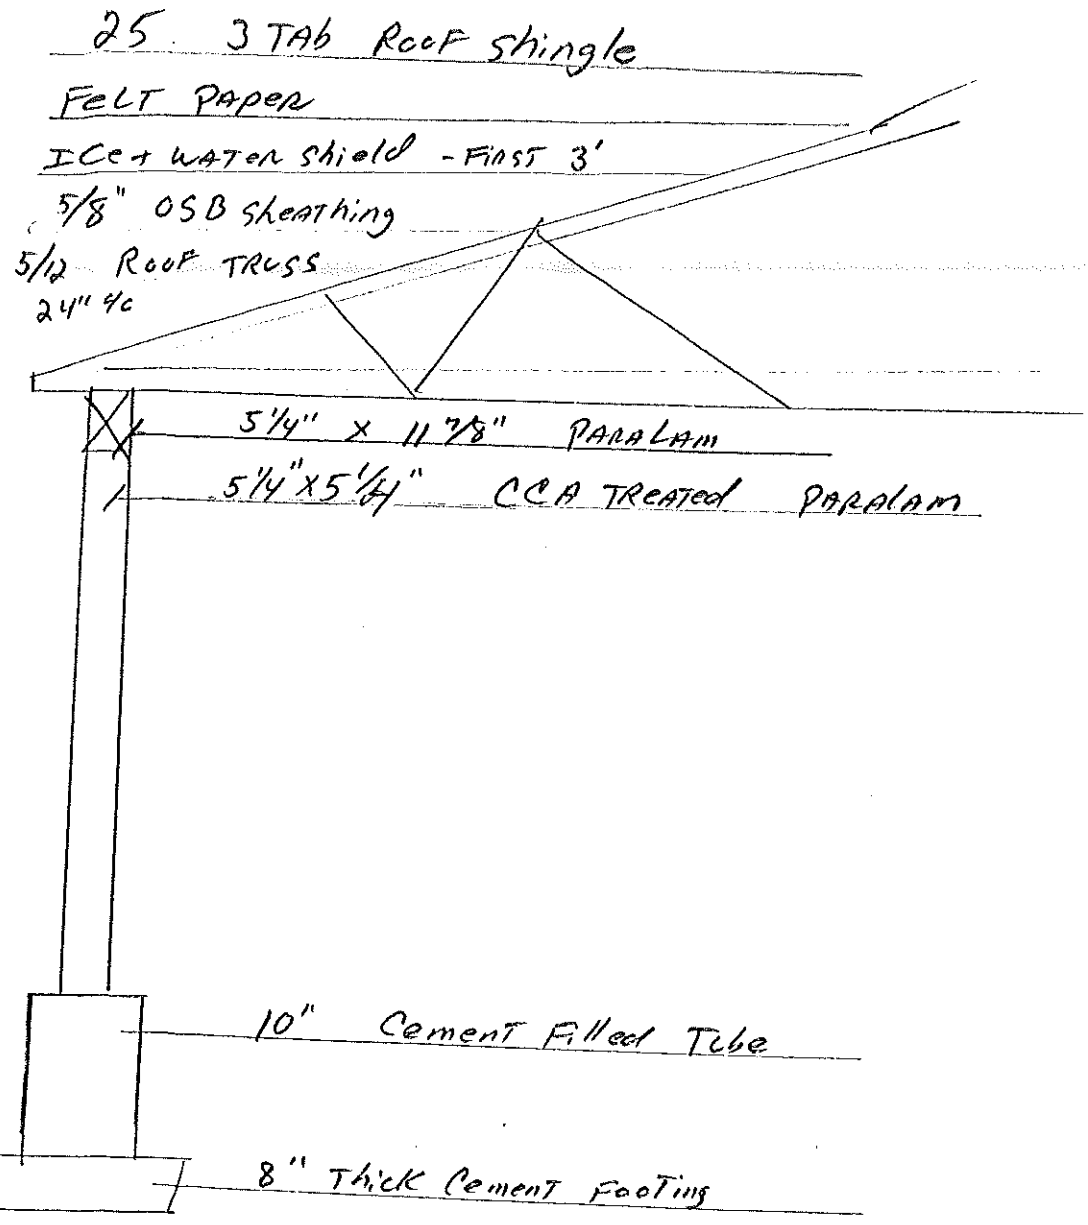 25 3 TAb RooF shingle
FeLT PAPeR
ICe + WATeR Shield - FiRST 3'
5/8" OSB SheAThing
5/12 RooF TRUSS
24" o/c
5 1/4" X 11 7/8" PARALAm
5 1/4" X 5 1/4" CCA TReATed PARAlAm
10" CemenT Filled Tube
8" Thick CemenT FooTing